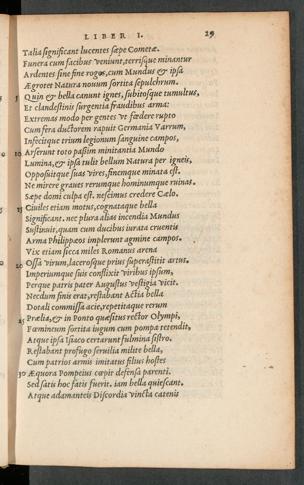 LIBER I. 29
Talia significant lucentes sæpe Cometæ.
Funera cum facibus veniunt, terrisque minantur
Ardentes sine fine rogos, cum Mundus & ipsa
Ægrotet Natura novum sortita sepulchrum.
5 Quin & bella canunt ignes, subitosque tumultus,
Et clandestinis surgentia fraudibus arma:
Externas modo per gentes vt fœdere rupto
Cum fera ductorem rapuit Germania Varrum,
Infecitque trium legionum sanguine campos,
10 Arserunt toto passim minitantia Mundo
Lumina, & ipsa tulit bellum Natura per igneis,
Opposuitque suas vires, finemque minata est.
Ne mirere graues rerumque hominumque ruinas.
Sæpe domi culpa est. nescimus credere Cælo.
15 Ciuiles etiam motus, cognataque bella
Significant. nec plura alias incendia Mundus
Sustinuit, quam cum ducibus iurata cruentis
Arma Philippæos implerunt agmine campos.
Vix etiam sicca miles Romanus arena
20 Ossa virum, lacerosque prius superastitit artus.
Imperiumque suis conflixit viribus ipsum,
Perque patris pater Augustus vestigia vicit.
Necdum finis erat, restabant Actia bella
Dotali commissa acie, repetitaque rerum
25 Prælia, & in Ponto quæsitus rector Olympi,
Fœmineum sortita iugum cum pompa retendit,
Atque ipsa Isiaco certarunt fulmina sistro.
Restabant profugo seruilia milite bella,
Cum patrios armis imitatus filius hostes
30 Æquora Pompeius cœpit defensa parenti.
Sed satis hoc fatis fuerit. iam bella quiescant.
Atque adamanteis Discordia vincta catenis